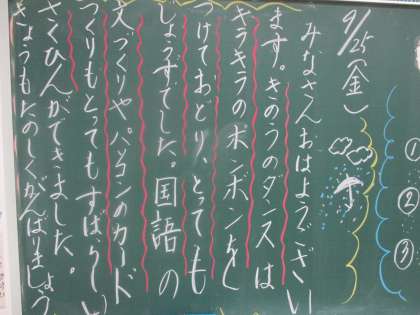 ①
②
③
9/25(金)
みなさんおはようござい
ます。きのうのダンスは
キラキラのボンボンを
つけておどり、とっても
じょうずでした。国語の
文づくりやパソコンのカード
づくりもとってもすばらしい
さくひんができました。
きょうもたのしくがんばりましょう